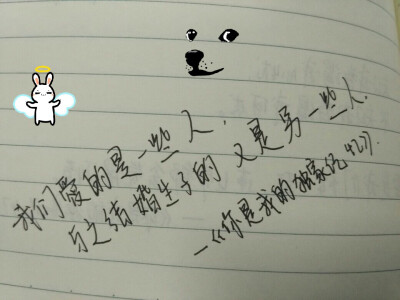 我们爱的是一些人.
与之结婚生子的又是另一些人.
—《你是我的独家记忆》.